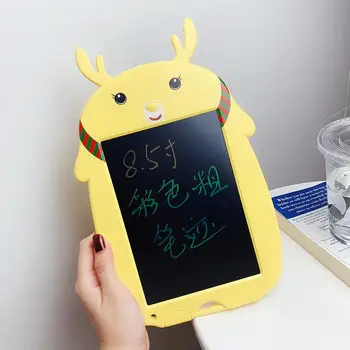 8.5寸
彩色粗
笔迹